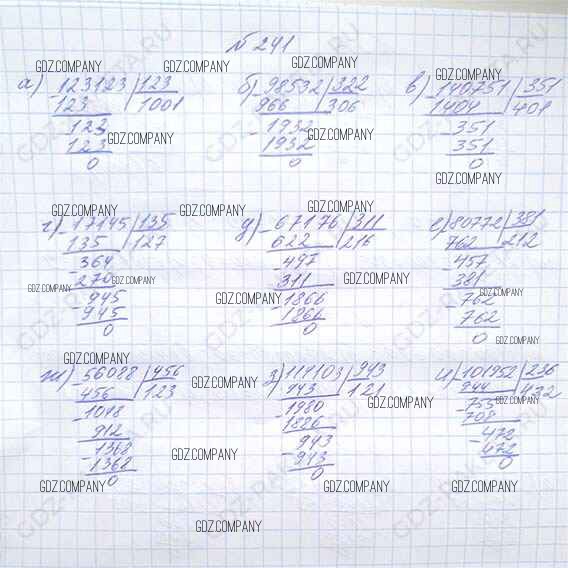 №241
GDZ.COMPANY GDZ.COMPANY GDZ.COMPANY GDZ.COMPANY
а) 123123 | 123 б) 98532 | 322 в) 140751 | 351
123 | 1001 966 | 306 1404 | 401
GDZ.COMPANY GDZ.COMPANY
123 1932 351
123 1932 351
0 0 0
GDZ.COMPANY
GDZ.COMPANY GDZ.COMPANY GDZ.COMPANY
г) 17145 | 135 д) 67176 | 311 е) 80772 | 381
135 | 127 622 | 216 762 | 212
364 497 457
270 311 381
GDZ.COMPANY GDZ.COMPANY GDZ.COMPANY GDZ.COMPANY GDZ.COMPANY
945 1866 762
945 1866 762
0 0 0
GDZ.COMPANY
GDZ.COMPANY
ж) 56088 | 456 з) 114103 | 943 и) 101952 | 236
456 | 123 943 | 121 944 | 432
GDZ.COMPANY GDZ.COMPANY GDZ.COMPANY
1048 1980 755
912 1886 708
1368 943 472
1368 943 472
0 0 0
GDZ.COMPANY
GDZ.COMPANY GDZ.COMPANY GDZ.COMPANY
GDZ.COMPANY